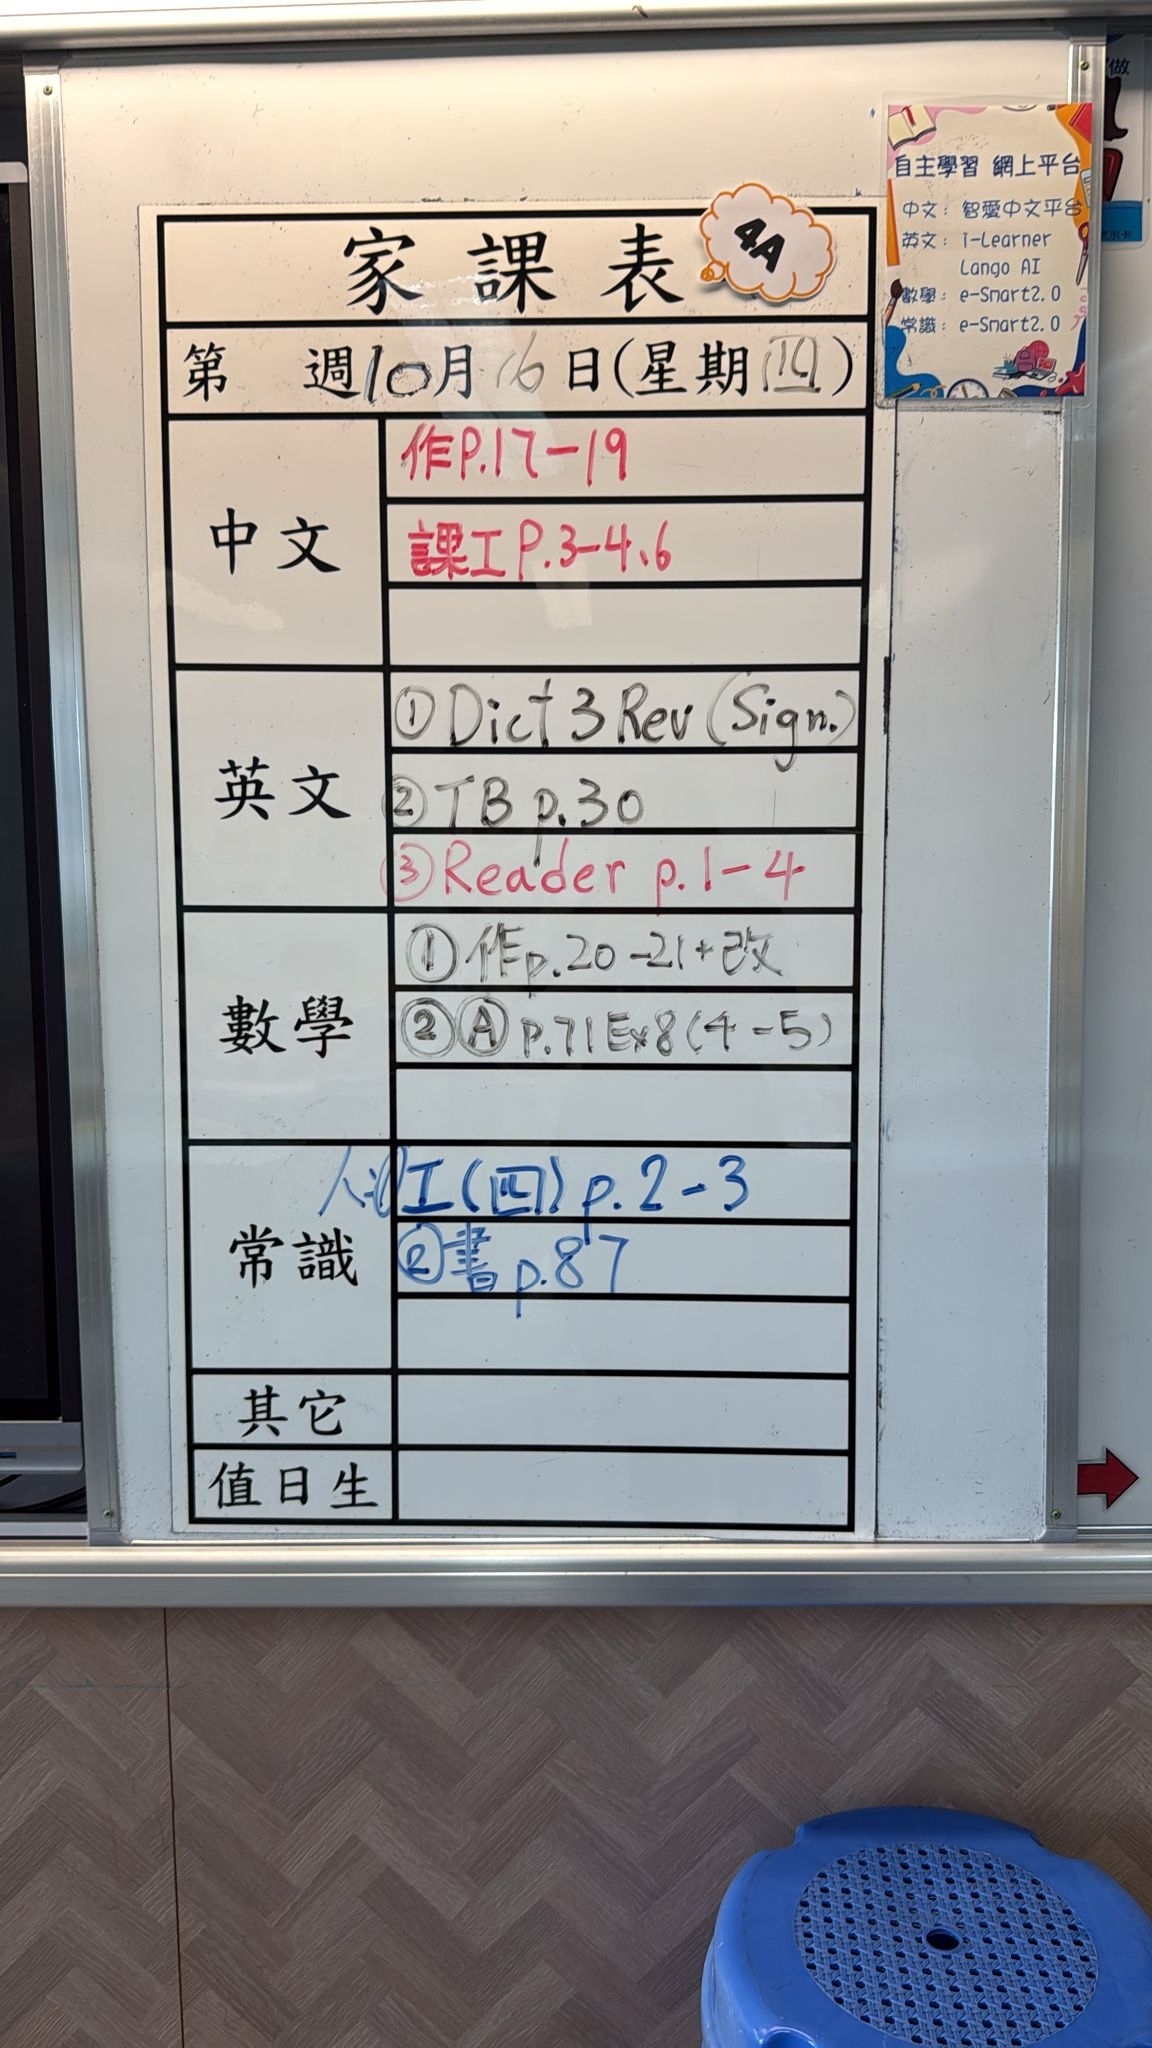 家課表
4A
第 週10月16日(星期四)
中文
作P.17-19
課工P.3-4、6
英文
①Dict 3 Rev (Sign.)
②TB p.30
③Reader p.1-4
數學
①作p.20-21+改
②Ⓐp.71Ex8(4-5)
常識
工(四)p.2-3
②書p.87
其它
值日生
自主學習 網上平台
中文：智愛中文平台
英文：i-Learner
Lango AI
數學：e-Smart2.0
常識：e-Smart2.0
做
示卡